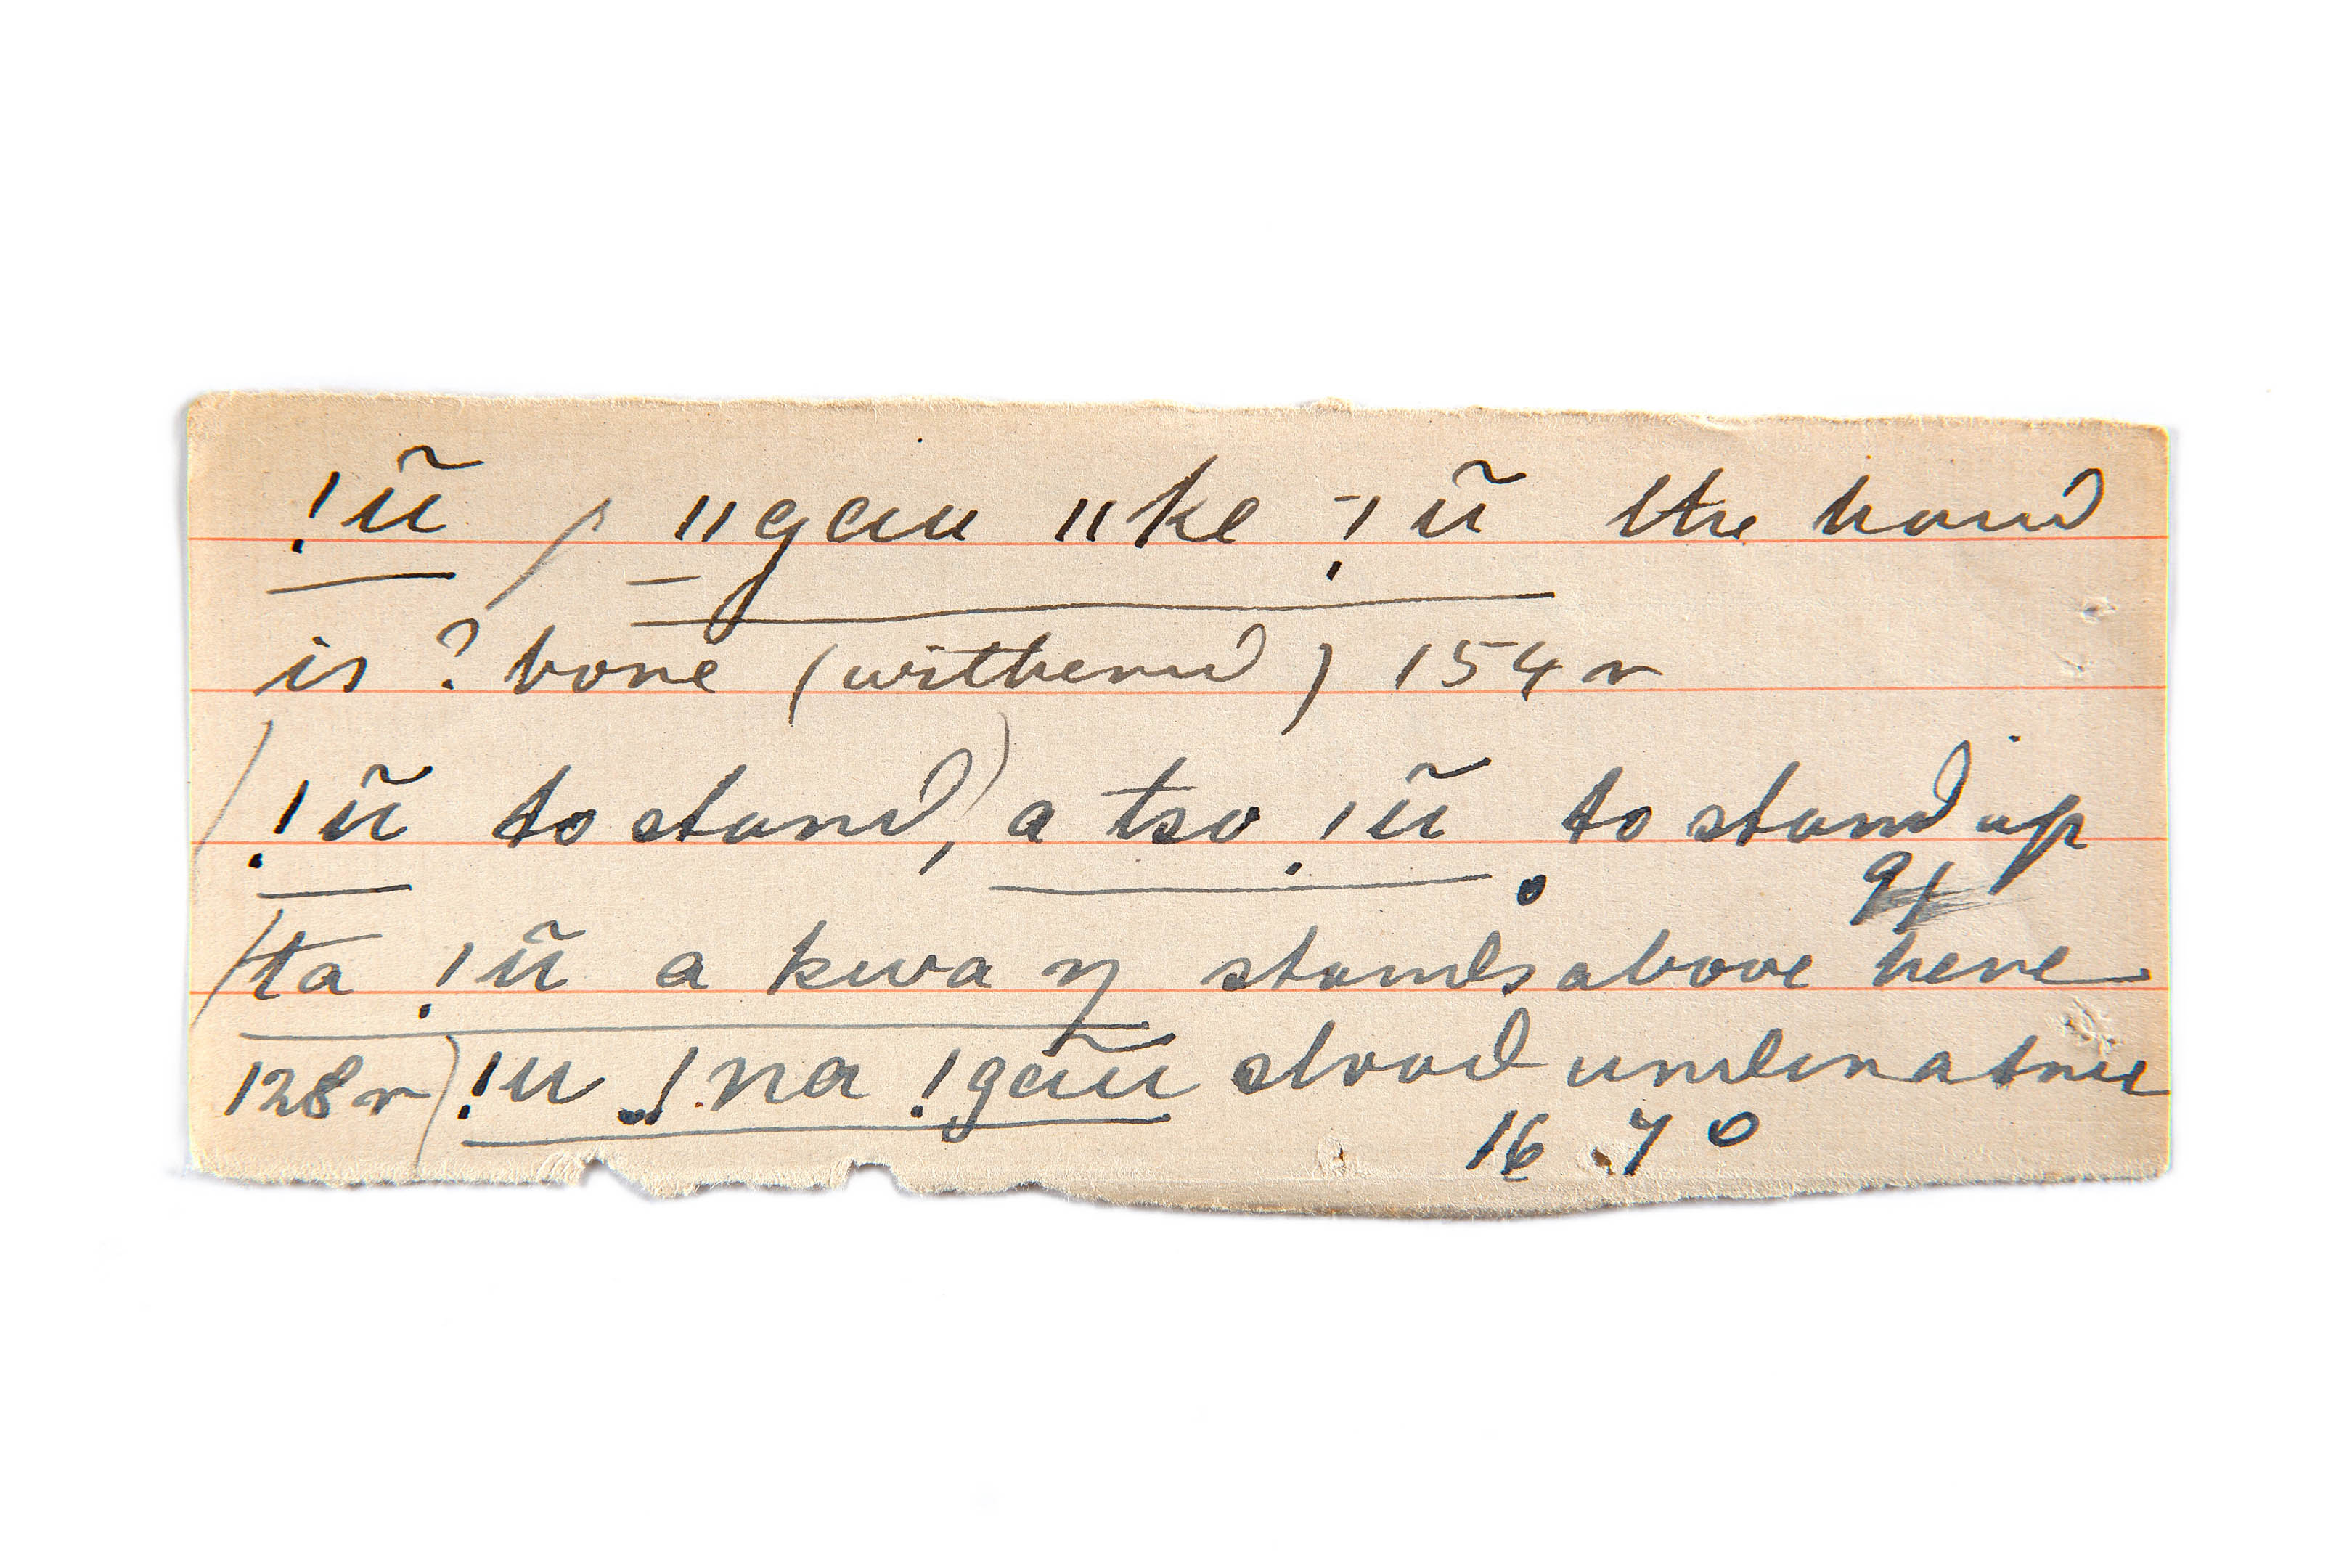 !ũ , ǁgau ǁke !ũ the hand
is ? bone (withered) 154 r
(!ũ to stand) , a tso !ũ to stand up
91
(ta !ũ a kwa ŋ stands above here
128 r) !u !na !gãũ stood under a tree
16 70